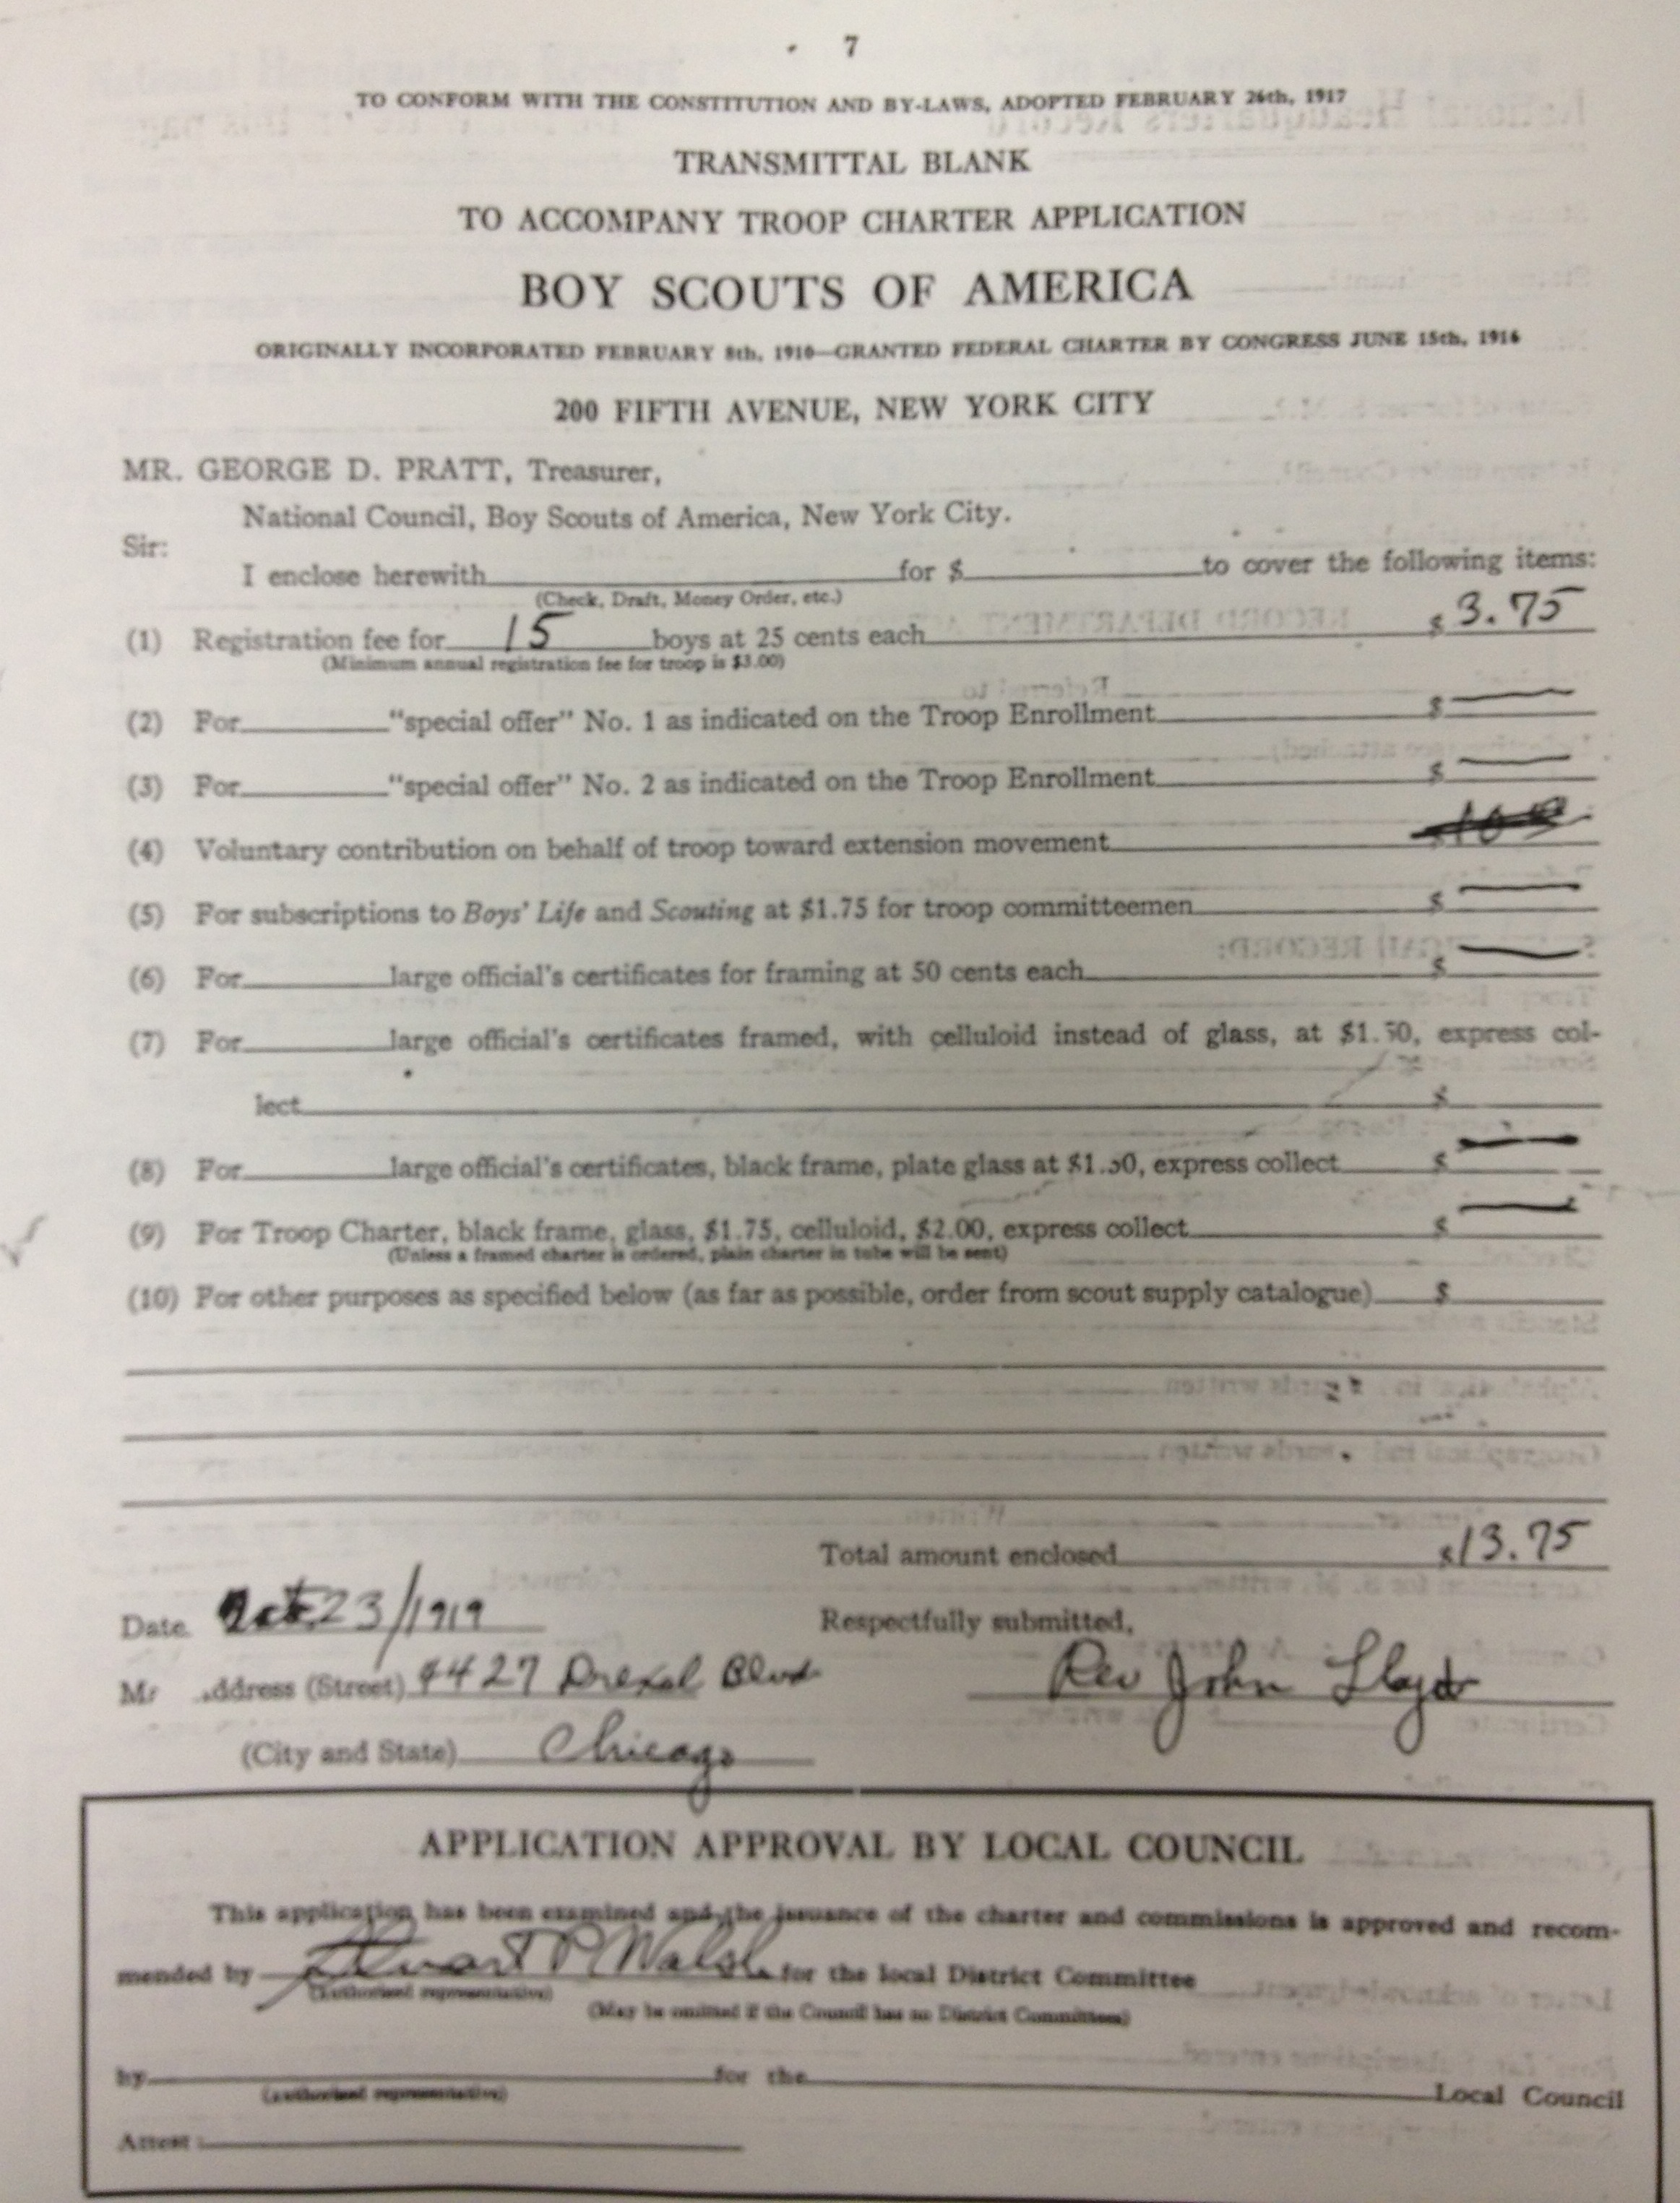 7
TO CONFORM WITH THE CONSTITUTION AND BY-LAWS, ADOPTED FEBRUARY 26th, 1917
TRANSMITTAL BLANK
TO ACCOMPANY TROOP CHARTER APPLICATION
BOY SCOUTS OF AMERICA
ORIGINALLY INCORPORATED FEBRUARY 8th, 1910—GRANTED FEDERAL CHARTER BY CONGRESS JUNE 15th, 1916
200 FIFTH AVENUE, NEW YORK CITY
MR. GEORGE D. PRATT, Treasurer,
National Council, Boy Scouts of America, New York City.
Sir:
I enclose herewith for $ to cover the following items:
(Check, Draft, Money Order, etc.)
(1) Registration fee for 15 boys at 25 cents each $ 3.75
(Minimum annual registration fee for troop is $3.00)
(2) For "special offer" No. 1 as indicated on the Troop Enrollment $ —
(3) For "special offer" No. 2 as indicated on the Troop Enrollment $ —
(4) Voluntary contribution on behalf of troop toward extension movement
(5) For subscriptions to Boys' Life and Scouting at $1.75 for troop committeemen $ —
(6) For large official's certificates for framing at 50 cents each $ —
(7) For large official's certificates framed, with celluloid instead of glass, at $1.50, express col-
lect $
(8) For large official's certificates, black frame, plate glass at $1.50, express collect $ —
(9) For Troop Charter, black frame, glass, $1.75, celluloid, $2.00, express collect $ —
(Unless a framed charter is ordered, plain charter in tube will be sent)
(10) For other purposes as specified below (as far as possible, order from scout supply catalogue) $
Total amount enclosed $13.75
Date Oct 23/1919
Respectfully submitted,
ddress (Street) 4427 Drexel Blvd
Rev John Lloyd
(City and State) Chicago
APPLICATION APPROVAL BY LOCAL COUNCIL
This application has been examined and the issuance of the charter and commissions is approved and recom-
mended by Stuart P. Walsh for the local District Committee
(authorized representative)
(May be omitted if the Council has no District Committees)
by for the Local Council
(authorized representative)
Attest: